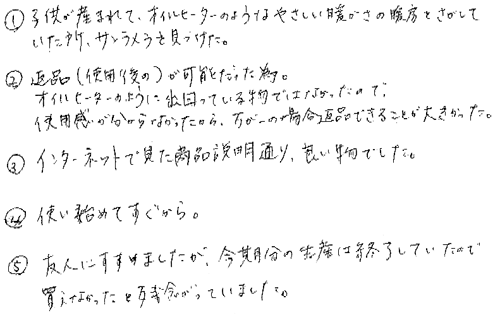 ① 子供が産まれて、オイルヒーターのようなやさしい暖かさの暖房をさがして
いた所、サンラメラを見つけた。
② 返品(使用後の)が可能だった為。
オイルヒーターのように出回っている物ではなかったので、
使用感が分からなかったから、万が一の場合返品できることが大きかった。
③ インターネットで見た商品説明通り、良い物でした。
④ 使い始めてすぐから。
⑤ 友人にすすめましたが、今期分の生産は終了していたので
買えなかったと残念がっていました。